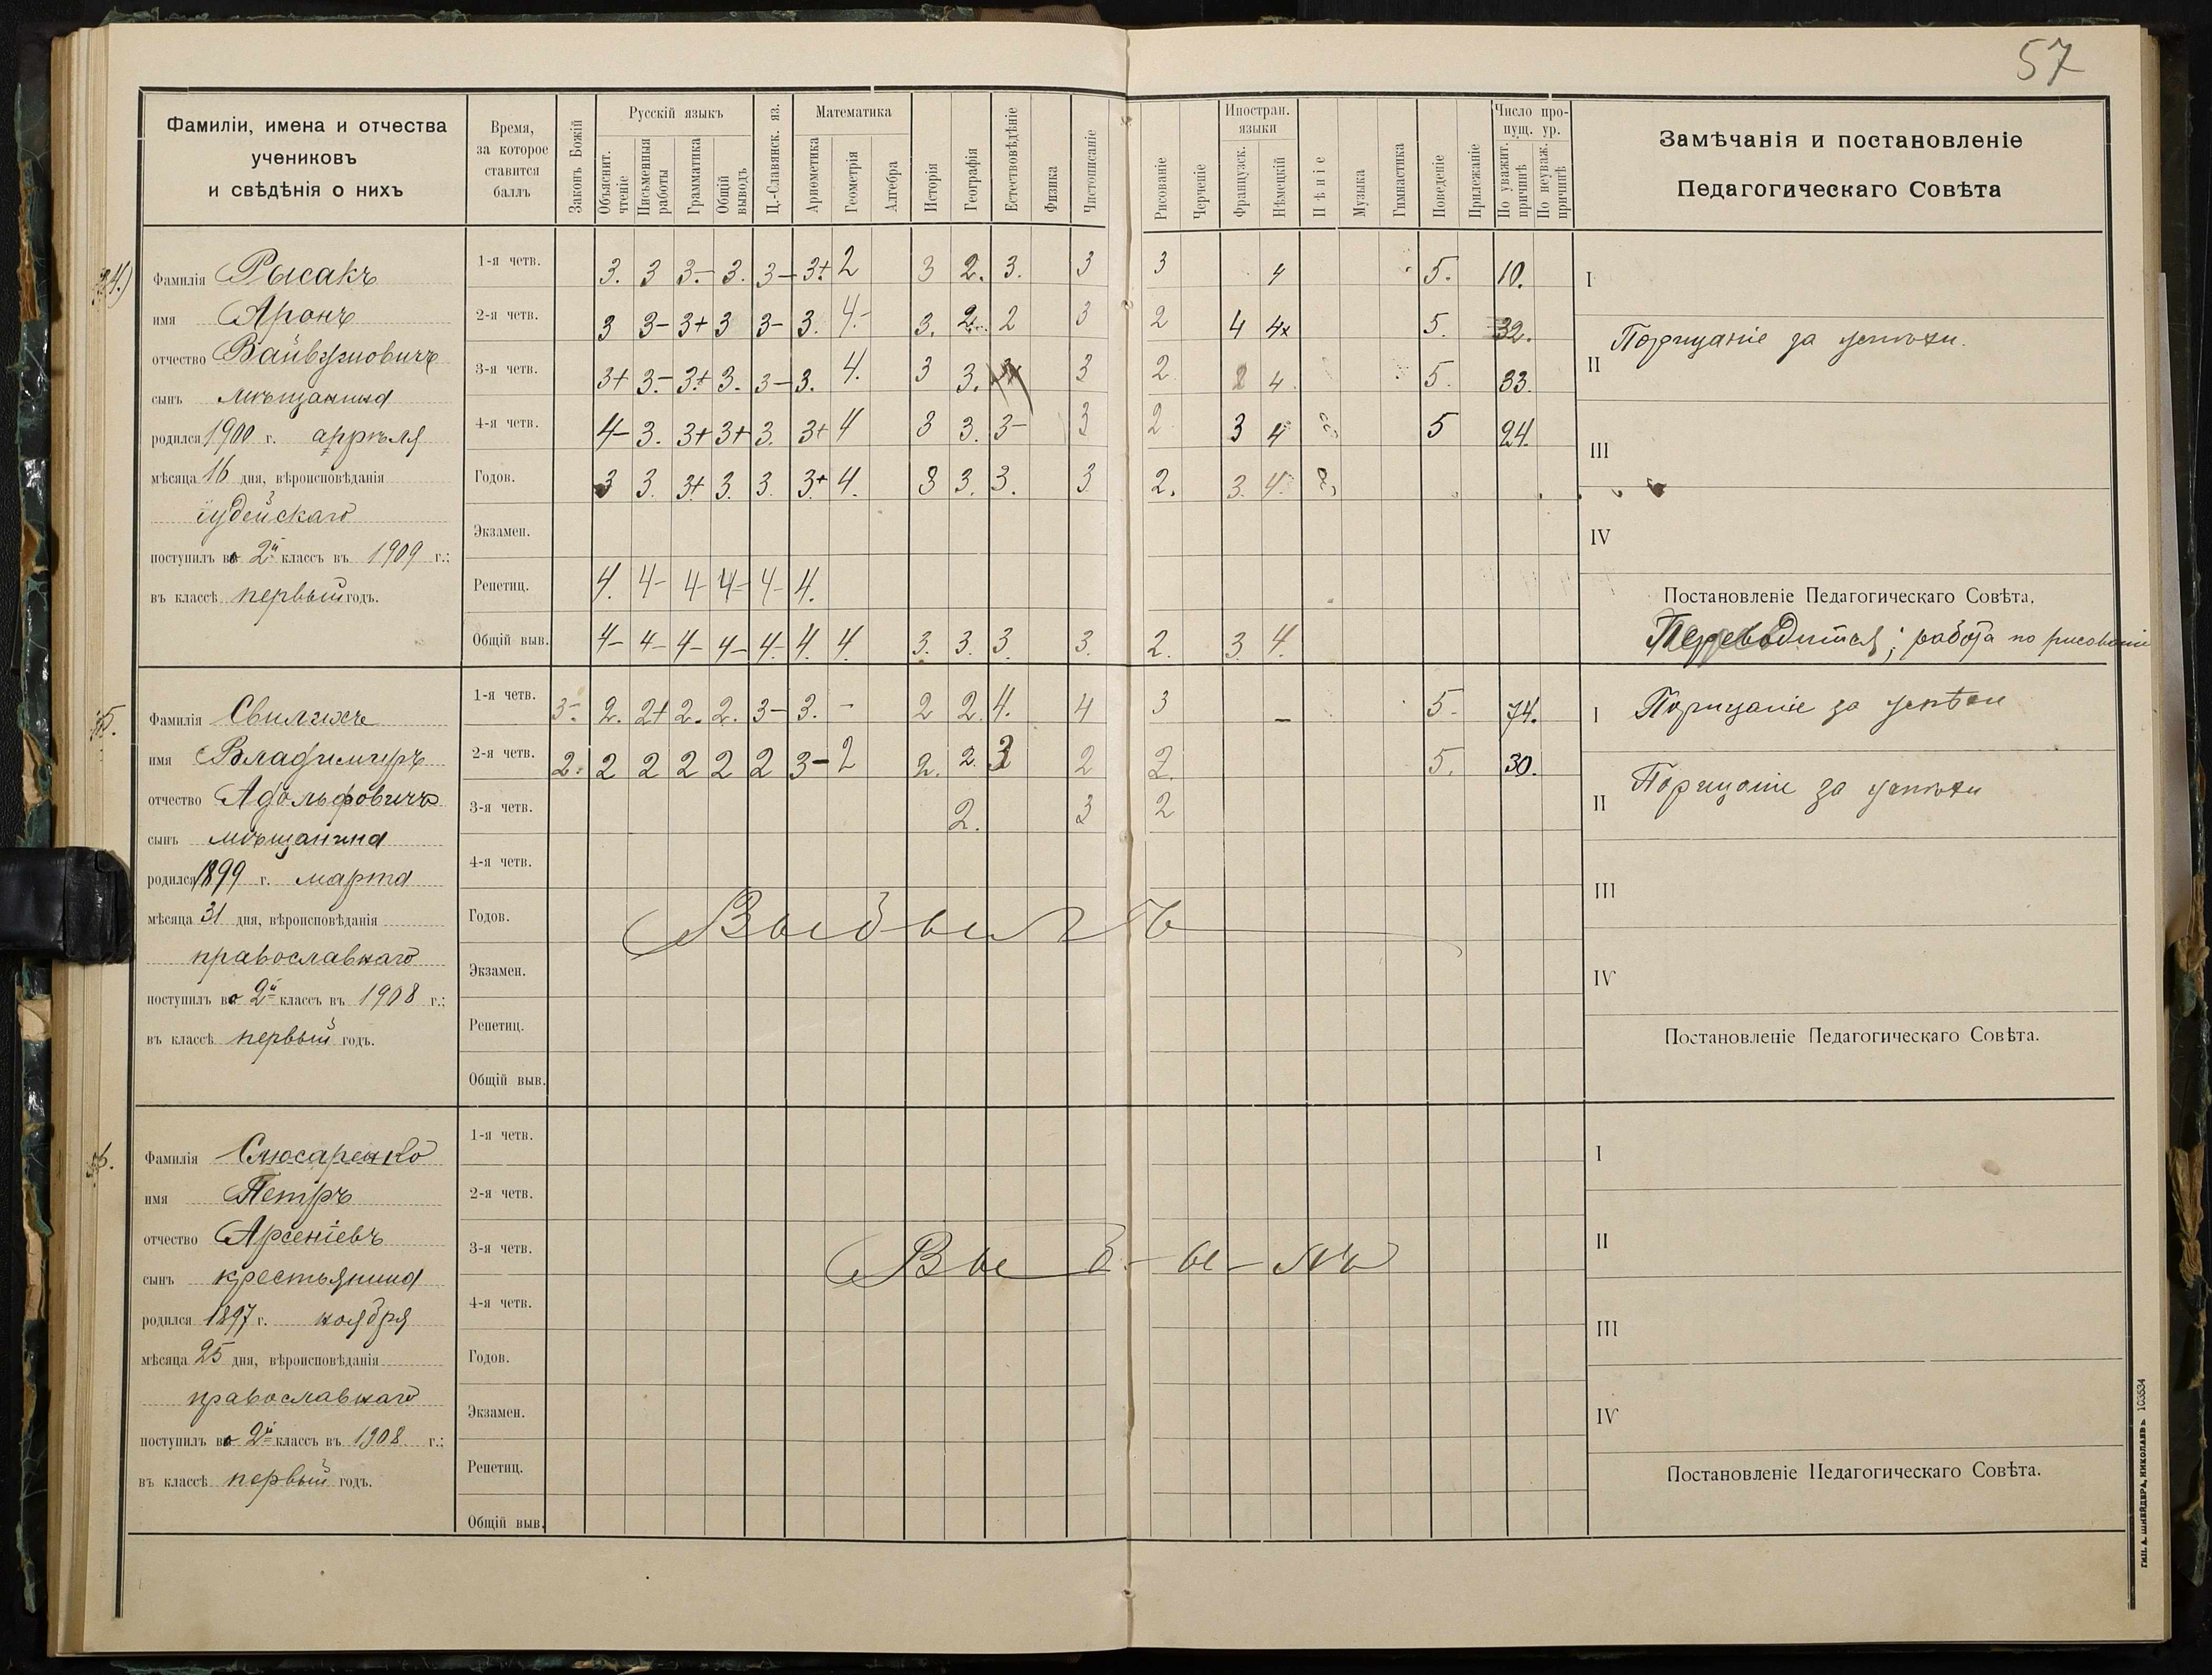 57
Фамиліи, имена и отчества
учениковъ
и свѣдѣнія о нихъ
Время,
за которое
ставится
баллъ
Законъ Божій
Русскій языкъ
Объяснит. чтеніе
Письменныя работы
Грамматика
Общій выводъ
Ц.-Славянск. яз.
Математика
Ариѳметика
Геометрія
Алгебра
Исторія
Географія
Естествовѣдѣніе
Физика
Чистописаніе
Рисованіе
Черченіе
Иностран. языки
Французск.
Нѣмецкій
Пѣніе
Музыка
Гимнастика
Поведеніе
Прилежаніе
Число пропущ. ур.
По уважит. причинѣ
По неуваж. причинѣ
Замѣчанія и постановленіе
Педагогическаго Совѣта
Фамилія Рысакъ
имя Аронъ
отчество
сынъ мѣщанина
родился 1900 г. апрѣля
мѣсяца 16 дня, вѣроисповѣданія
іудейскаго
поступилъ во 2й классъ въ 1909 г.;
въ классѣ первый годъ.
1-я четв. 3. 3 3.- 3. 3- 3+ 2 3 2. 3. 3 3 4 5. 10.
2-я четв. 3 3- 3+ 3 3- 3. 4.- 3. 2. 2 3 2 4 4 5. 32.
3-я четв. 3+ 3.- 3+ 3. 3- 3. 4. 3 3. 3 2 4 5. 33.
4-я четв. 4- 3. 3+ 3+ 3. 3+ 4 3 3. 3- 3 2 3 4 5 24.
Годов. 3 3. 3+ 3. 3. 3+ 4. 3 3. 3. 3. 2. 3. 4.
Экзамен.
Репетиц. 4. 4- 4- 4- 4- 4.
Общій выв. 4- 4- 4- 4- 4- 4. 4. 3. 3. 3. 3. 2. 3. 4.
I
II Порицаніе за успѣхи.
III
IV
Постановленіе Педагогическаго Совѣта.
Переводится; работа по рисованію
Фамилія
имя Владимиръ
отчество Адольфовичъ
сынъ мѣщанина
родился 1899 г. марта
мѣсяца 31 дня, вѣроисповѣданія
православнаго
поступилъ во 2й классъ въ 1908 г.;
въ классѣ первый годъ.
1-я четв. 3-. 2. 2+ 2. 2. 3- 3. - 2 2. 4. 4 3 - 5. 74.
2-я четв. 2. 2 2 2 2 2 3- 2 2. 2. 3 2 2. 5. 30.
3-я четв. 2. 3 2
4-я четв.
Годов.
Выбылъ
Экзамен.
Репетиц.
Общій выв.
I Порицаніе за успѣхи
II Порицаніе за успѣхи
III
IV
Постановленіе Педагогическаго Совѣта.
Фамилія Слюсаренко
имя Петръ
отчество Арсеніевъ
сынъ крестьянина
родился 1897 г. ноября
мѣсяца 25 дня, вѣроисповѣданія
православнаго
поступилъ во 2й классъ въ 1908 г.;
въ классѣ первый годъ.
1-я четв.
2-я четв.
3-я четв.
Выбылъ
4-я четв.
Годов.
Экзамен.
Репетиц.
Общій выв.
I
II
III
IV
Постановленіе Педагогическаго Совѣта.
ТИП. А. ШНЕЙДЕРА, НИКОЛАЕВЪ 103534